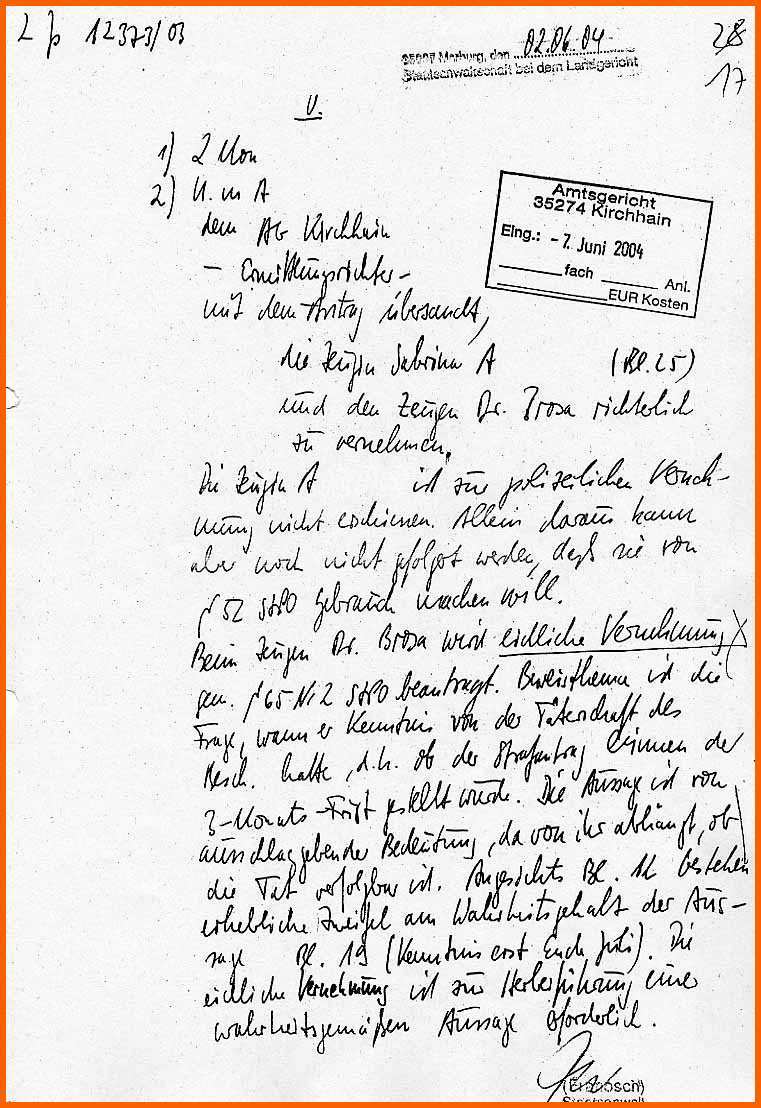 2 Js 12373/03
35037 Marburg, den 02.06.04
Staatsanwaltschaft bei dem Landgericht
28
17
V.
1) 2 Mon
2) U. m A
dem AG Kirchhain
– Ermittlungsrichter –
mit dem Antrag übersandt,
Amtsgericht
35274 Kirchhain
Eing.: -7. Juni 2004
fach Anl.
EUR Kosten
die Zeugin Sabrina A (Bl. 25)
und den Zeugen Dr. Brosa richterlich
zu vernehmen.
Die Zeugin A ist zur polizeilichen Verneh-
mung nicht erschienen. Allein daraus kann
aber noch nicht gefolgert werden, daß sie von
§ 52 StPO Gebrauch machen will.
Beim Zeugen Dr. Brosa wird eidliche Vernehmung
gem. § 65 Nr 2 StPO beantragt. Beweisthema ist die
Frage, wann er Kenntnis von der Täterschaft des
Besch. hatte, d.h. ob der Strafantrag binnen der
3-Monats-Frist gestellt wurde. Die Aussage ist von
ausschlaggebender Bedeutung, da von ihr abhängt, ob
die Tat verfolgbar ist. Angesichts Bl. 12 bestehen
erhebliche Zweifel am Wahrheitsgehalt der Aus-
sage Bl. 19 (Kenntnis erst Ende Juli). Die
eidliche Vernehmung ist zur Herbeiführung einer
wahrheitsgemäßen Aussage erforderlich.
Staatsanwalt